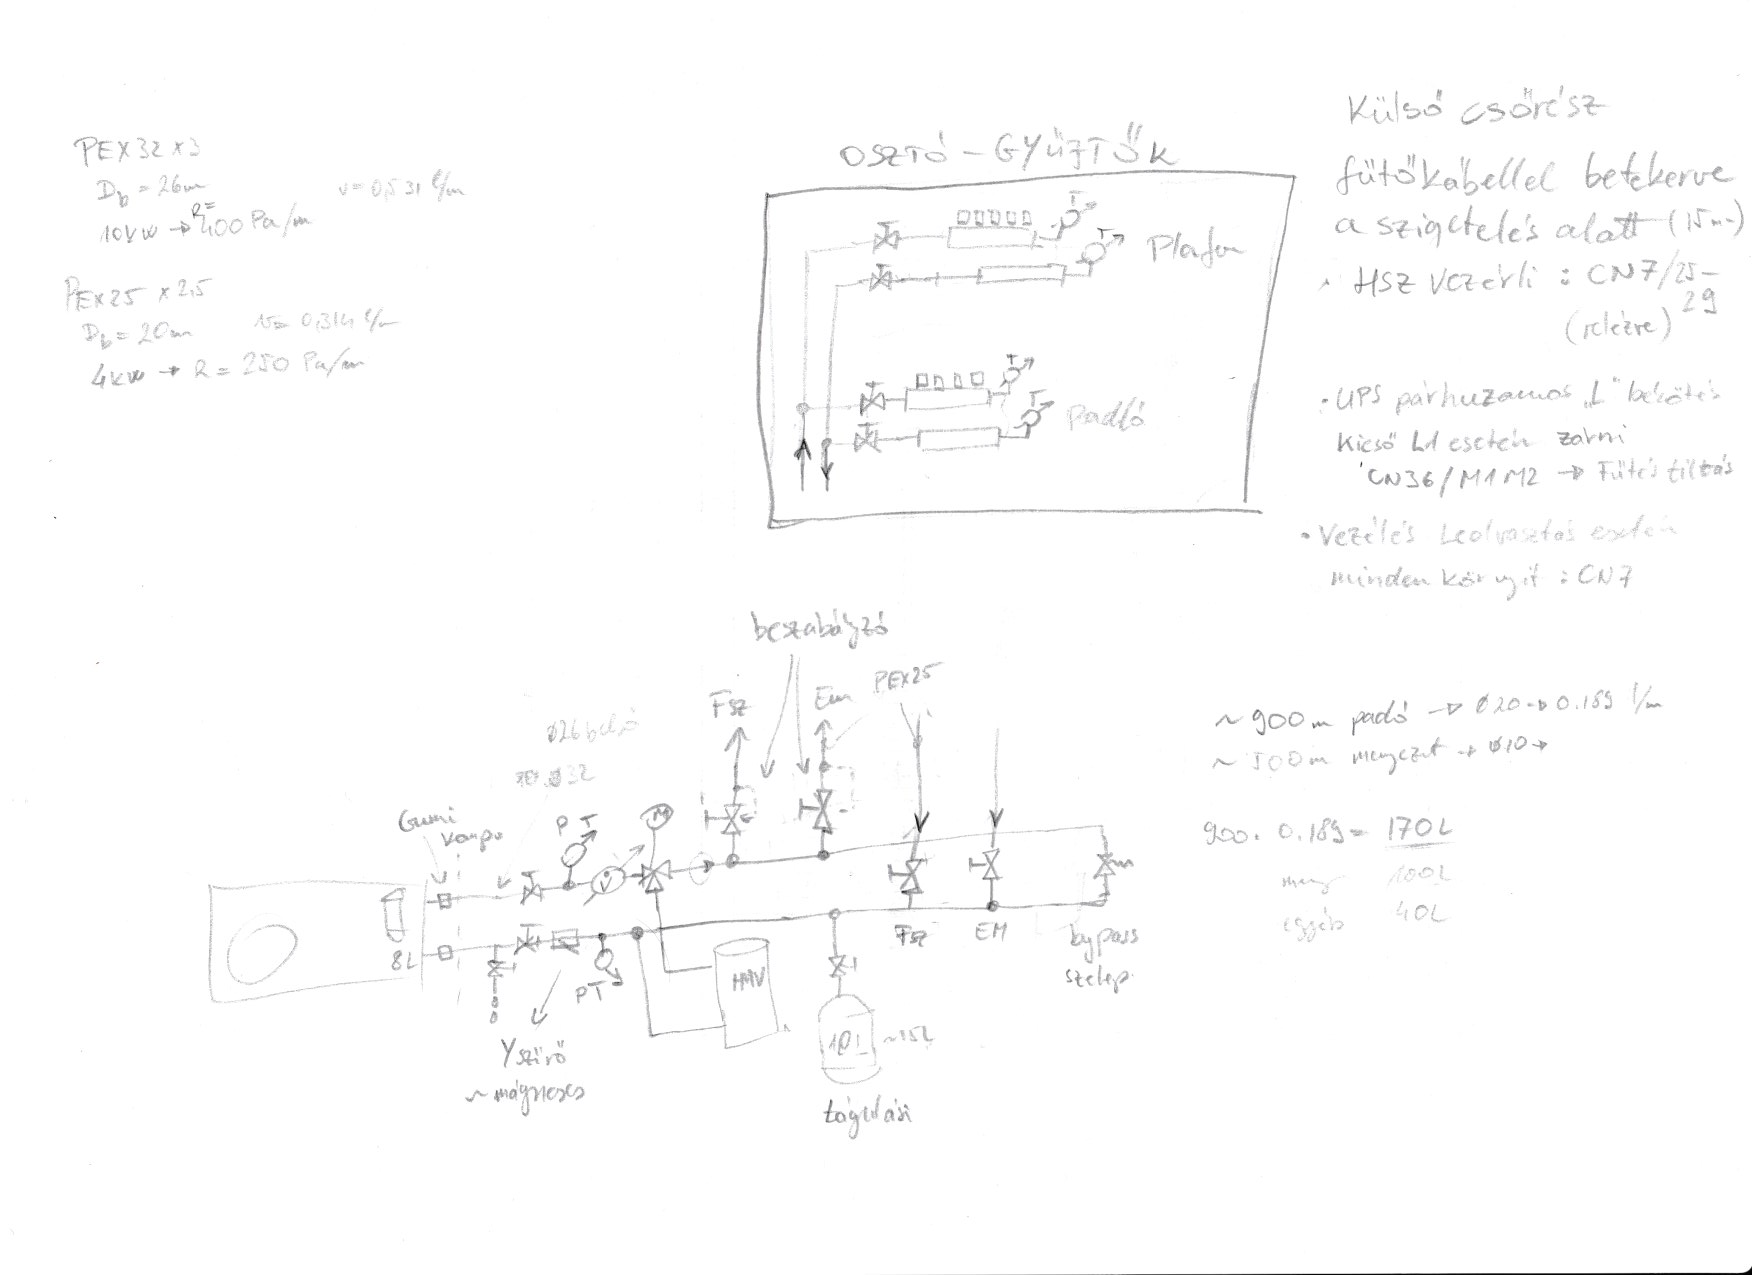 PEX32 x 3
Db = 26m
v = 0,531 l/m
R=
10kW → 400 Pa/m
PEX25 x 2,5
Db = 20m
v = 0,314 l/m
4kW → R = 250 Pa/m
OSZTÓ - GYŰJTŐK
T
T
Plafon
T
T
Padló
Külső csőrész
fűtőkábellel betekerve
a szigetelés alatt (15m)
HSZ vezérli : CN7/25-
29
(relézve)
• UPS párhuzamos „L" bekötés
kieső L1 esetén zárni
CN36/M1M2 → Fűtés tiltás
• Vezélés Leolvasztás esetén
minden kör nyit : CN7
beszabályzó
Fsz
Em
PEX25
Ø26 belső
Ø32
Gumi
kompe
P T
M
V
8L
PT
HMV
Fsz
EM
bypass
szelep
Y szűrő
~ mágneses
10L
~15L
tágulási
~ 900m padó → Ø20 → 0.189 l/m
~ 500m menyezet → Ø10 →
900 . 0.189 = 170L
meny 100L
egyéb 40L